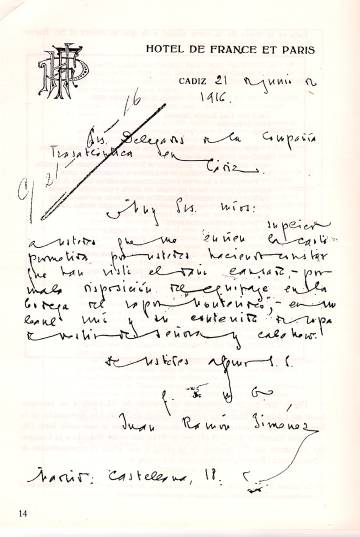 HOTEL DE FRANCE ET PARIS
CADIZ 21 de junio de
1916.
Srs. Delegados de la Compañía
Trasatlántica en
Cádiz.
9 21 - 16
Muy Srs. míos:
suplico
a ustedes que me envíen la carta
prometida por ustedes haciendo constar
que han visto el daño causado, - por
mala disposición del equipaje en la
bodega del vapor "Montevideo", - en un
baul mío y su contenido de ropa
de vestir de señora y caballero.
de ustedes afmo S. S.
q. b. s. m.
Juan Ramón Jiménez
Madrid: Castellana, 18.
14